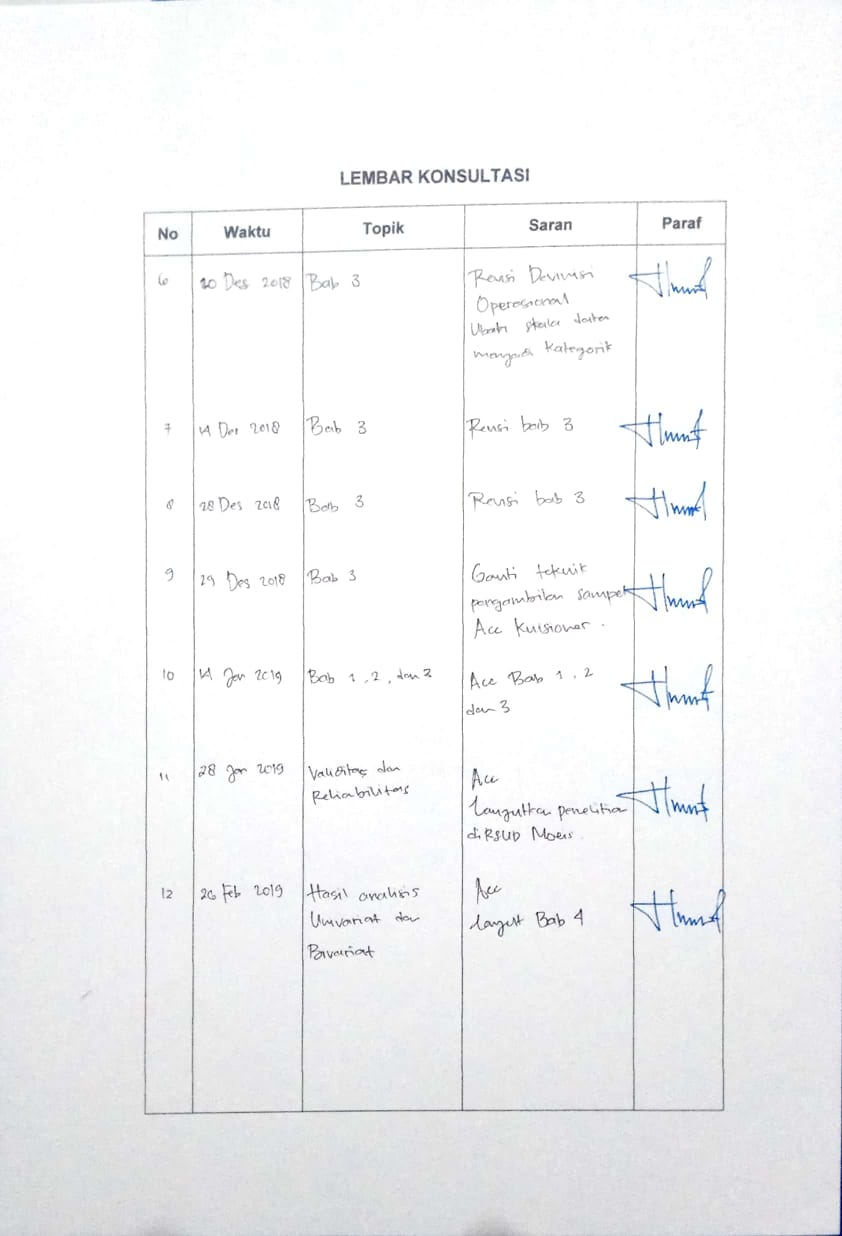 LEMBAR KONSULTASI
No Waktu Topik Saran Paraf
6 20 Des 2018 Bab 3 Revisi Devinisi
Operasional
Ubah skala data
menjadi Kategorik
7 14 Des 2018 Bab 3 Revisi bab 3
8 28 Des 2018 Bab 3 Revisi bab 3
9 29 Des 2018 Bab 3 Ganti teknik
pengambilan sampel
Acc Kuisioner.
10 14 Jan 2019 Bab 1, 2, dan 3 Acc Bab 1, 2
dan 3
11 28 Jan 2019 Validitas dan Acc
Reliabilitas Langutkan penelitia
di RSUD Moeis
12 26 Feb 2019 Hasil analisis Acc
Univariat dan Langut Bab 4
Bivariat